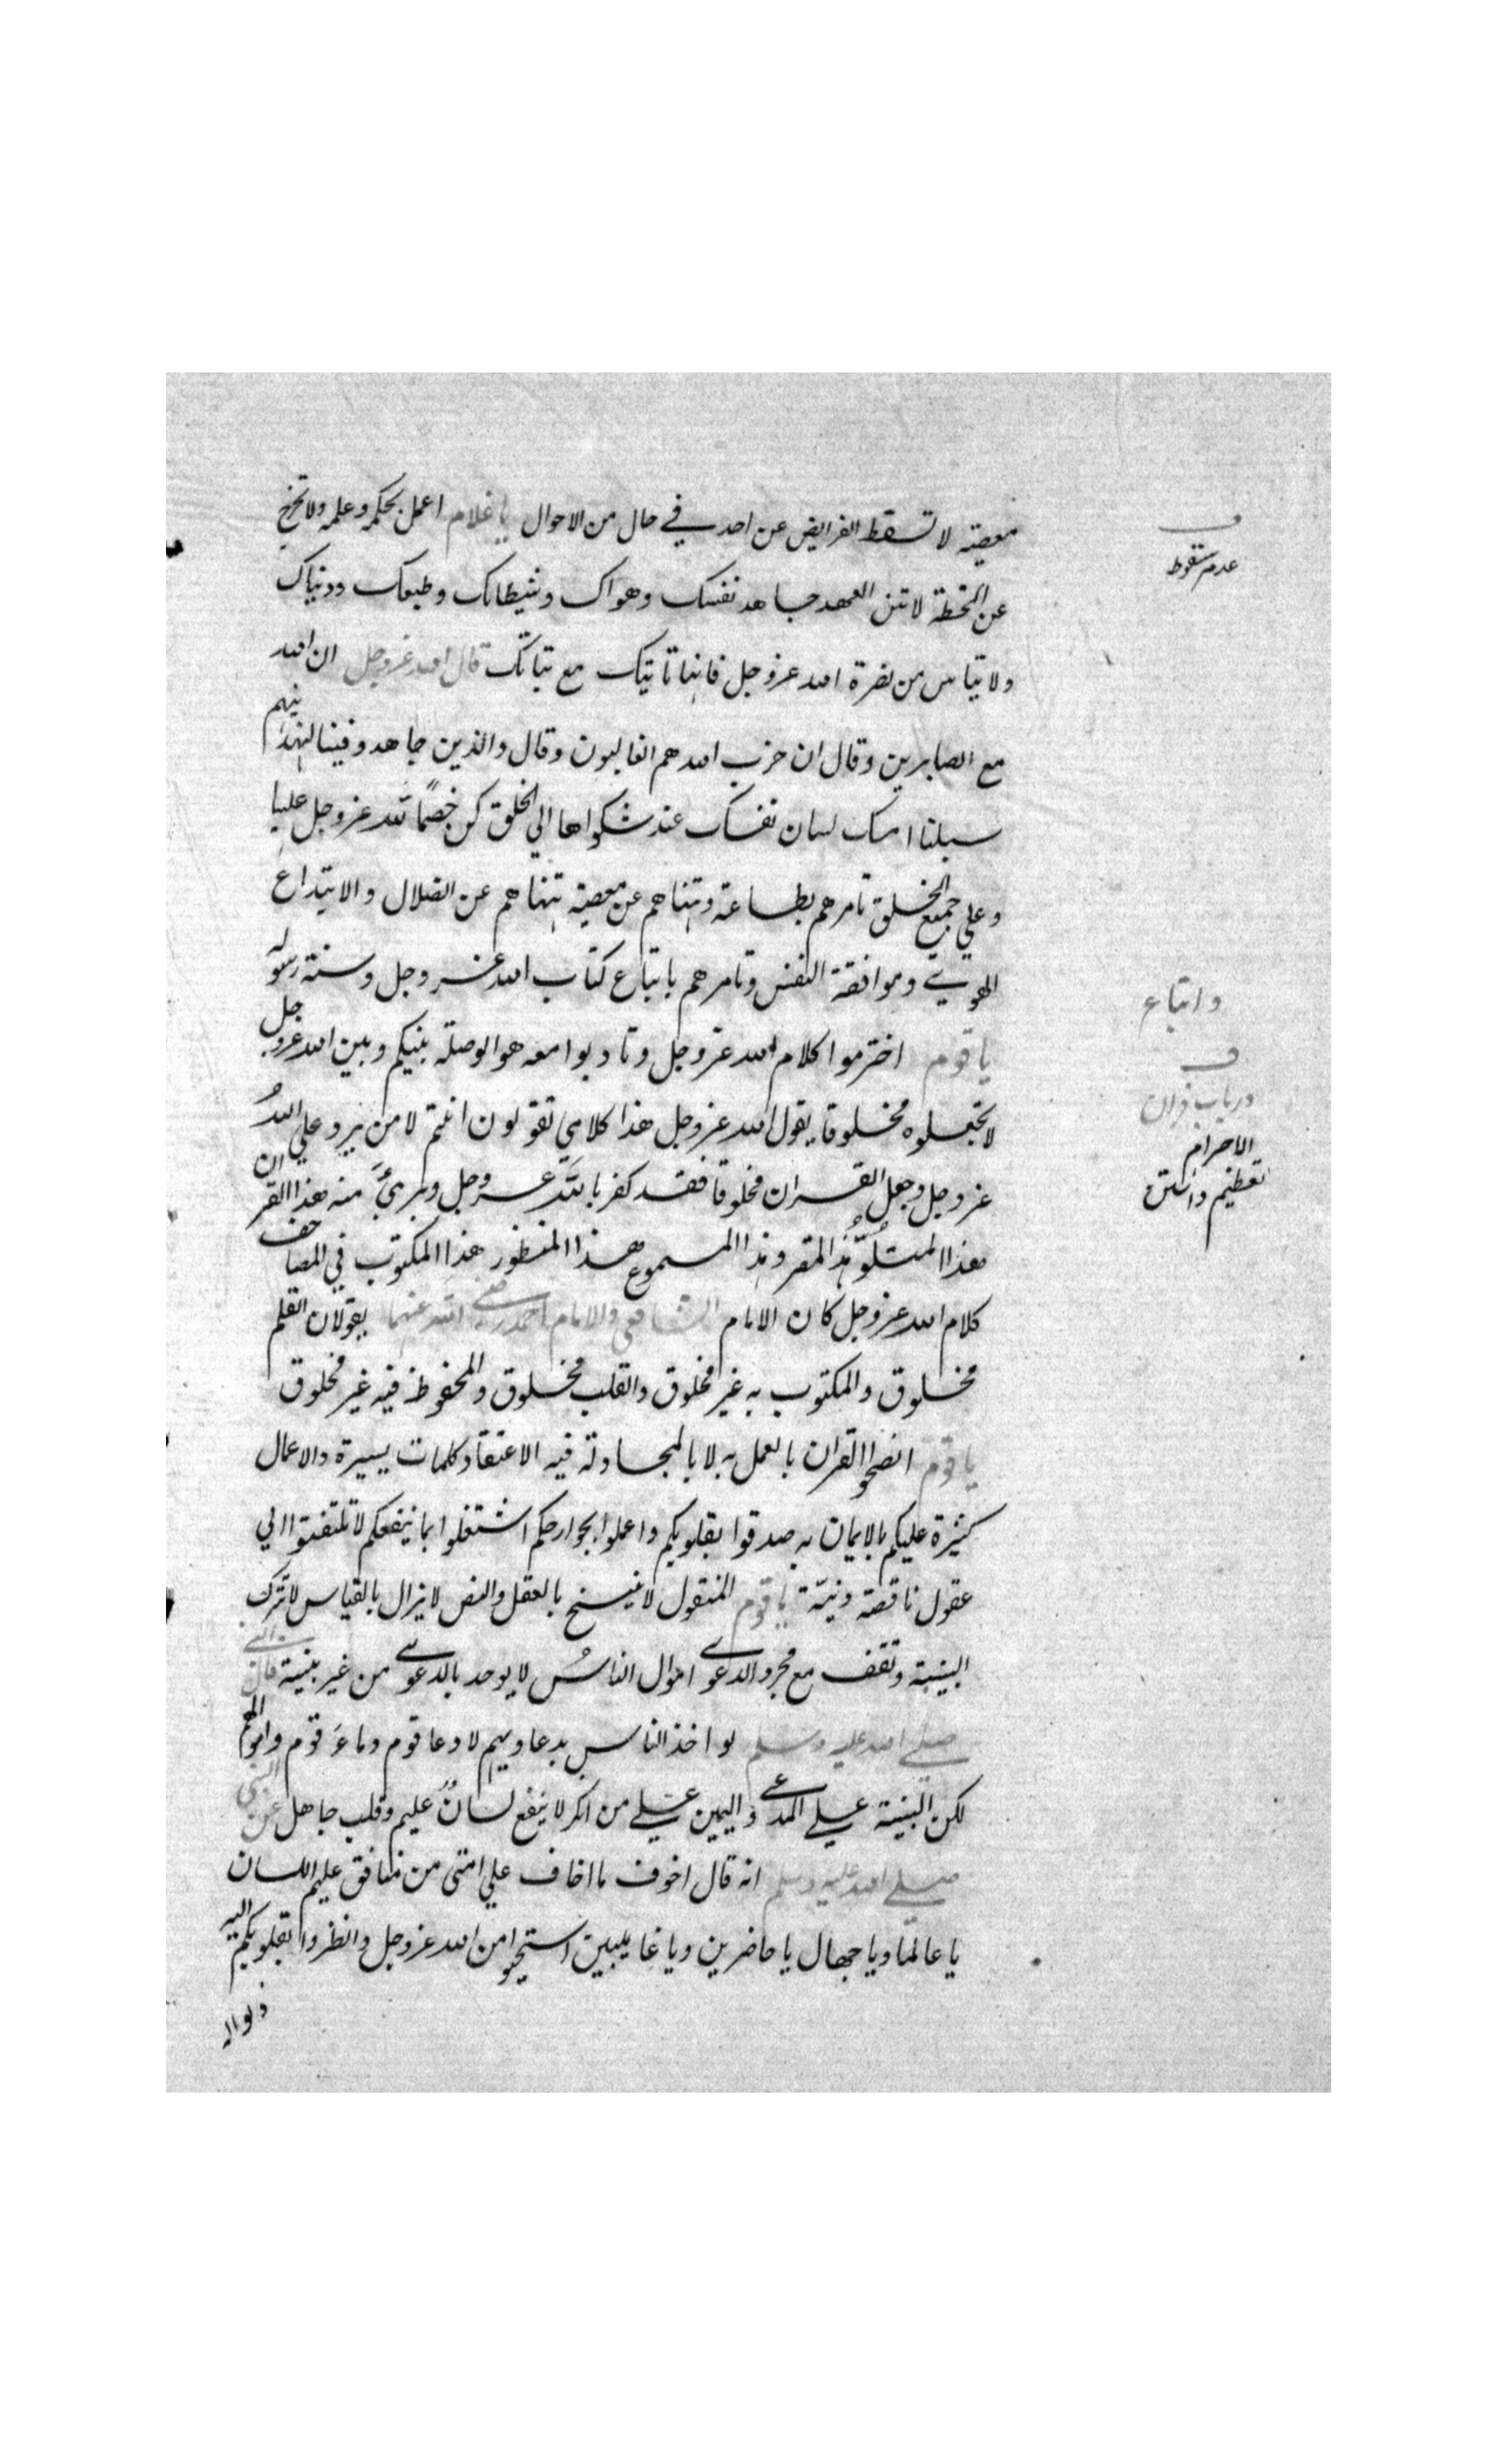 معصيته لا تسقط الفرايض عن احد في حال من الاحوال يا غلام اعمل بحكمه وعلمه ولا تخرج
عن الخطة لا تنس العهد جاهد نفسك وهواك وشيطانك وطبعك ودنياك
ولا تياس من نصرة الله عز وجل فانها تاتيك مع ثباتك قال الله عز وجل ان الله
مع الصابرين وقال ان حزب الله هم الغالبون وقال والذين جاهدوا فينا لنهدينهم
سبلنا امسك لسان نفسك عند شكواها الي الخلق كن خصمًا لله عز وجل عليها
وعلي جميع الخلق تامرهم بطاعته وتنهاهم عن معصيته تنهاهم عن الضلال والابتداع
واتباع
الهوي وموافقة النفس وتامرهم باتباع كتاب الله عز وجل وسنة رسوله
يا قوم احترموا كلام الله عز وجل وتادبوا معه هو الوصلة بينكم وبين الله عز وجل
لا تجعلوه مخلوقا يقول الله عز وجل هذا كلامي تقولون انتم لا من يرد علي الله
عز وجل وجعل القران مخلوقا فقد كفر بالله عز وجل وبرئ منه هذا القران
هذا المتلو هذا المقرو هذا المسموع هذا المنظور هذا المكتوب في المصاحف
كلام الله عز وجل كان الامام الشافعي والامام احمد رضي الله عنهما يقولان القلم
مخلوق والمكتوب به غير مخلوق والقلب مخلوق والمحفوظ فيه غير مخلوق
يا قوم انصحوا القران بالعمل به لا بالمجادلة فيه الاعتقاد كلمات يسيرة والاعمال
كثيرة عليكم بالايمان به صدقوا بقلوبكم واعملوا بجوارحكم اشتغلوا بما ينفعكم لا تلتفتوا الي
عقول ناقصة دنيّة يا قوم المنقول لا ينسخ بالعقل والنص لا يزال بالقياس لا تترك
البينة وتقف مع مجرد الدعوي اموال الناس لا يوحد بالدعوي من غير بينة قال النبي
صلي الله عليه وسلم لو اخذ الناس بدعاويهم لادعا قوم دماء قوم واموالهم
لكن البينة علي المدعي واليمين علي من انكر لا ينفع لسانٌ عليم وقلب جاهل عن النبي
صلي الله عليه وسلم انه قال اخوف ما اخاف علي امتي من منافق عليم اللسان
يا عالما ويا جهال يا حاضرين ويا غايبين استحيوا من الله عز وجل وانظروا بقلوبكم اليه
ذلوا له
عدم سقوط
در باب قران
الاحرام
تعظيم داشتن